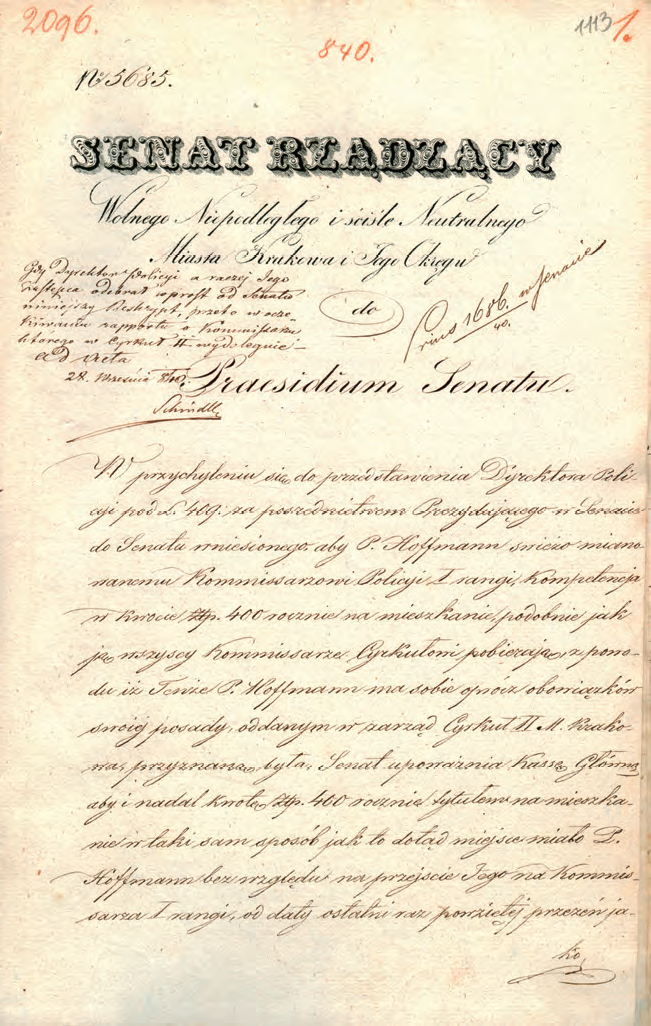 2096.
840.
1113 1.
No 5685.
SENAT RZĄDZĄCY
Wolnego Niepodległego i ściśle Neutralnego
Miasta Krakowa i Jego Okręgu
do
Gdy Dyrektor Policyi a raczej Jego
Zastępca odebrał wprost od Senatu
niniejszy Reskrypt, przeto w ocze-
kiwaniu rapportu o Kommissarzu
którego w Cyrkuł II
ad acta
28. Września
Prius 1686. w Senacie
40.
Praesidium Senatu.
W przychyleniu się do przedstawienia Dyrektora Poli-
cyi pod L. 409: za pośrednictwem Prezydującego w Senacie
do Senatu wniesionego, aby P. Hoffmann świeżo miano-
wanemu Kommissarzowi Policyi I rangi, kompetencja
w kwocie Złp. 400 rocznie na mieszkanie, podobnie jak
ją wszyscy Kommissarze Cyrkułowi pobierają, z powo-
du iż Tenże P. Hoffmann ma sobie oprócz obowiązków
swoiej posady, oddanym w zarząd Cyrkuł II M. Krako-
wa, przyznaną była, Senat upoważnia Kassę Główną
aby i nadal kwotę Złp. 400 rocznie tytułem na mieszka-
nie w taki sam sposób jak to dotąd miejsce miało P.
Hoffmann bez względu na przejście Jego na Kommis-
sarza I rangi, od daty ostatni raz powziętej przezeń ja-
ko